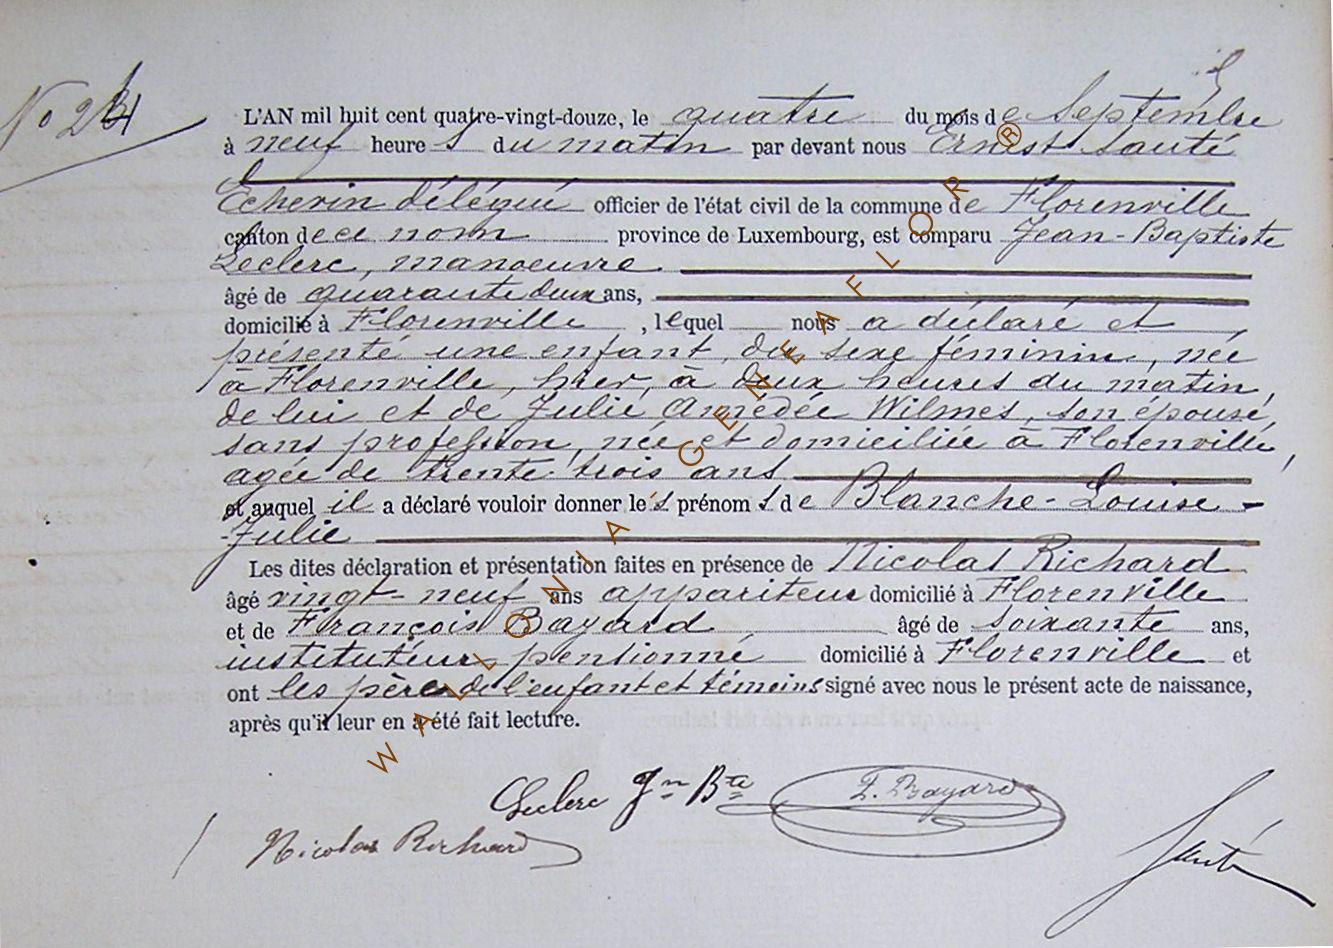 No 24
L'AN mil huit cent quatre-vingt-douze, le quatre du mois de Septembre
à neuf heures du matin par devant nous Ernest Santé
Echevin délégué officier de l'état civil de la commune de Florenville
canton de ce nom province de Luxembourg, est comparu Jean-Baptiste
Leclerc, manoeuvre
âgé de quarante deux ans,
domicilié à Florenville, lequel nous a déclaré et
présenté une enfant du sexe féminin, née
à Florenville, hier, à deux heures du matin,
de lui et de Julie Amédée Wilmes, son épouse,
sans profession, née et domiciliée à Florenville,
agée de trente trois ans
et auquel il a déclaré vouloir donner les prénoms de Blanche-Louise-
-Julie
Les dites déclaration et présentation faites en présence de Nicolas Richard
âgé vingt-neuf ans appariteur domicilié à Florenville
et de François Bayard âgé de soixante ans,
instituteur pensionné domicilié à Florenville et
ont les père de l'enfant et témoins signé avec nous le présent acte de naissance,
après qu'il leur en a été fait lecture.
Leclerc Jn Bte F. Bayard
Nicolas Richard Santé
WALLONIA GENEAFLOR ®